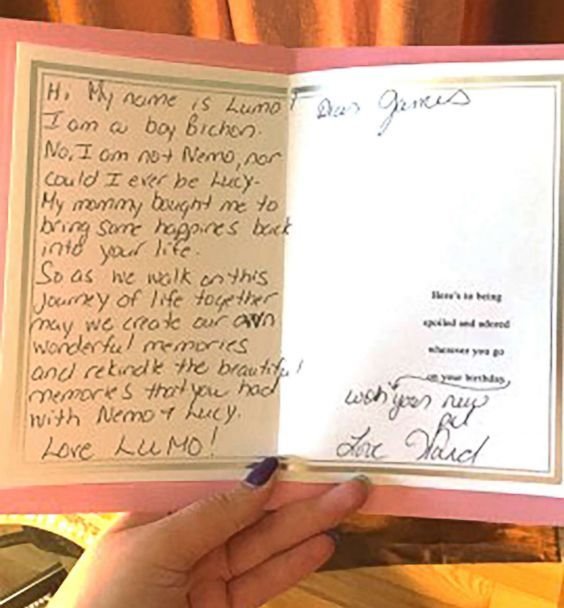 Hi My name is Lumo!
I am a boy Bichon.
No, I am not Nemo, nor
could I ever be Lucy.
My mommy bought me to
bring some happines back
into your life.
So as we walk on this
journey of life together
may we create our own
wonderful memories
and rekindle the beautiful
memories that you had
with Nemo + Lucy.
Love LUMO!
Dear James
Here's to being
spoiled and adored
wherever you go
on your birthday
with your new
pet
Love